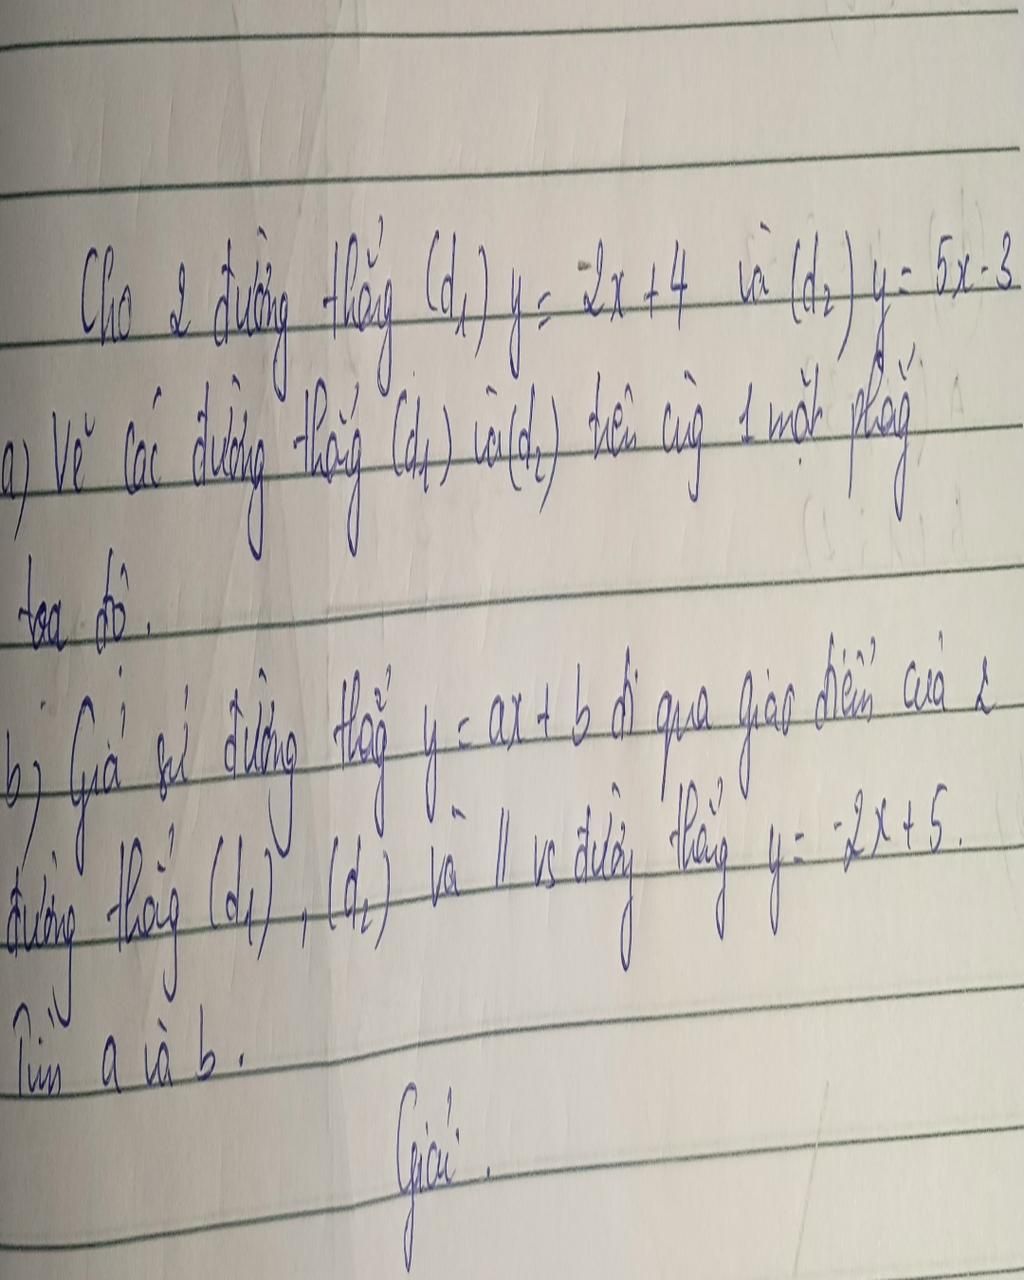 Cho 2 đường thẳg (d₁) y = -2x + 4 và (d₂) y = 5x - 3
a) Vẽ các đường thẳg (d₁) và (d₂) trên cùg 1 mặt phẳg
tọa độ.
b) Giả sử đường thẳg y = ax + b đi qua giao điểm của 2
đường thẳg (d₁), (d₂) và // vs đườg thẳg y = -2x + 5.
Tìm a và b.
Giải.